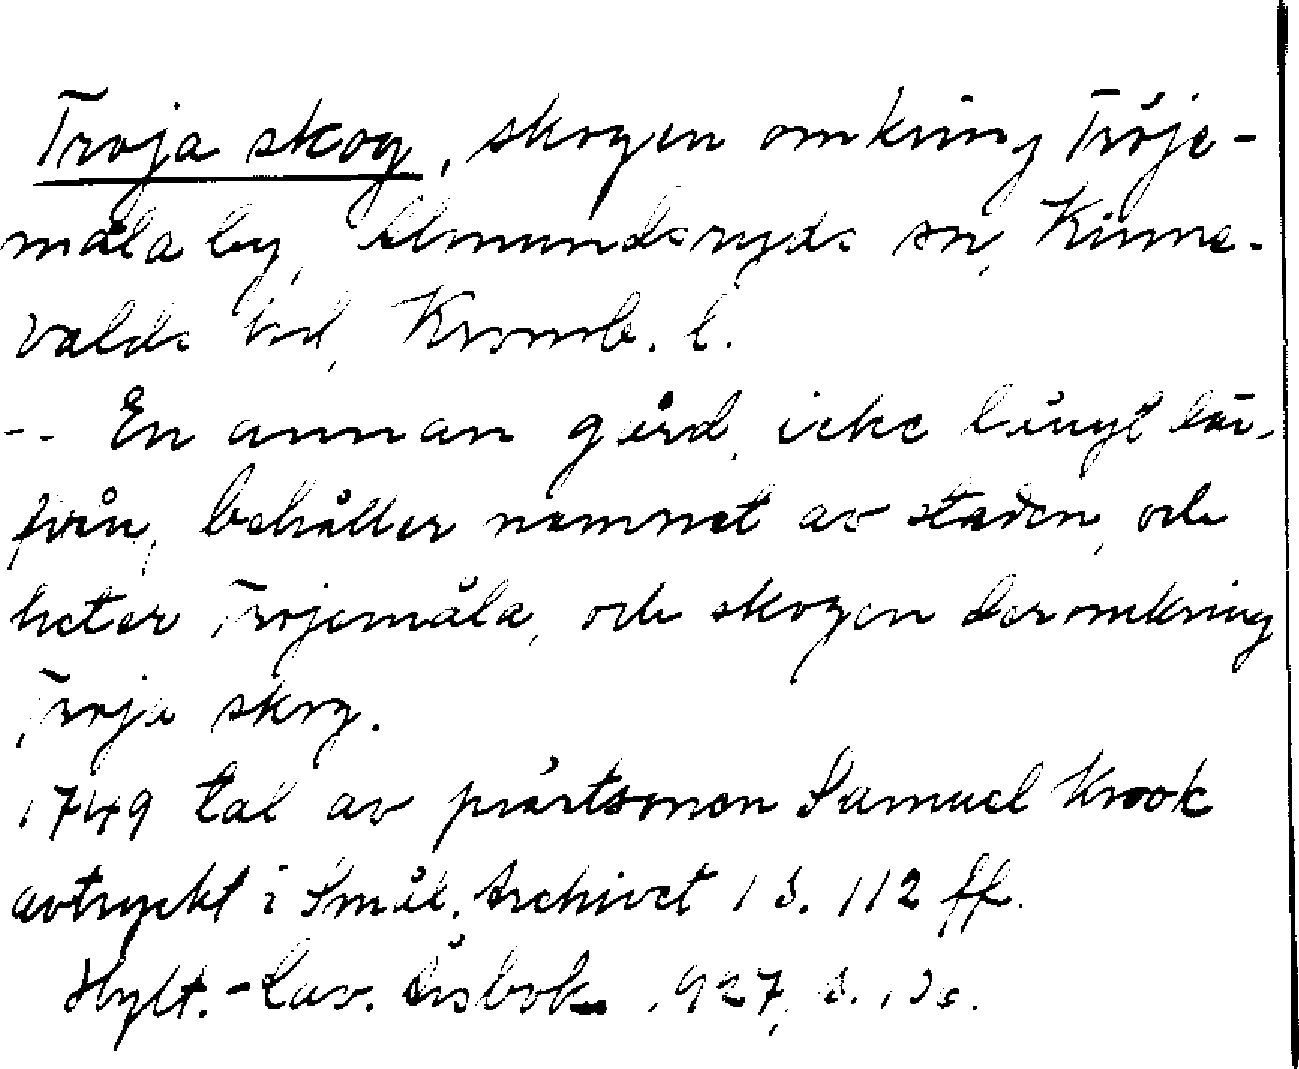 Troja skog, skogen omkring Tröje-
måla by, Älmundsryds sn, Kinne-
valds hd, Kronob. l.
-- En annan gård, icke långt här-
ifrån, behåller namnet av staden, och
heter Trojemåla, och skogen deromkring
Troja skog.
1749 tal av prästsonen Samuel Krook
avtryckt i Smål. Archivet 1 s. 112 ff.
Hylt.-Cav. Årsbok 1927, s.